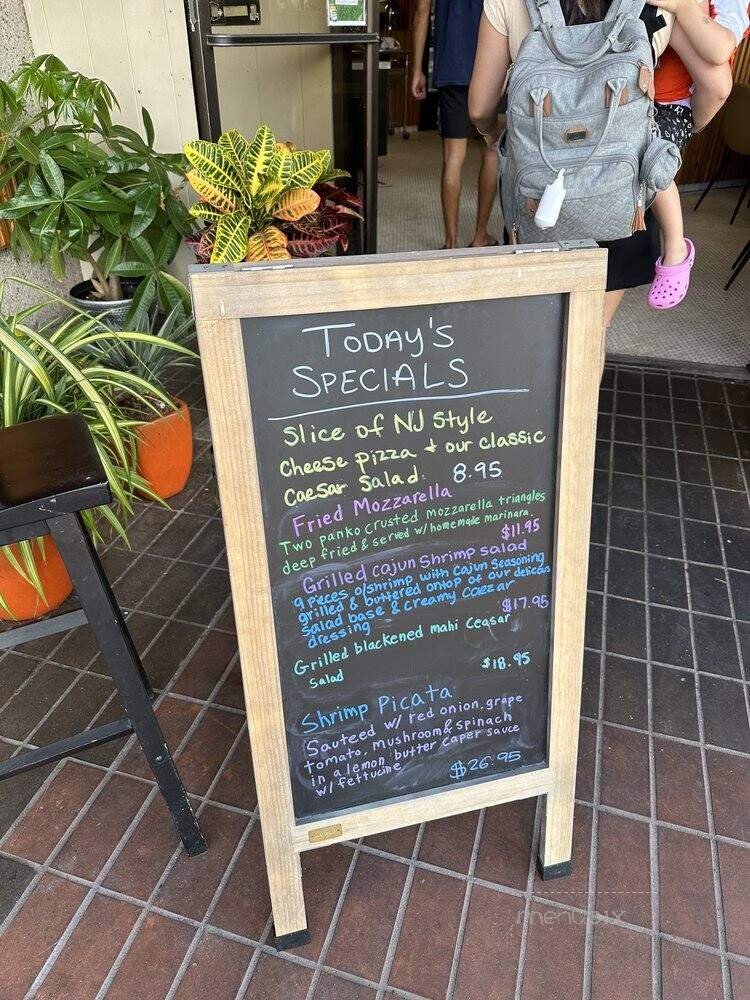 TODAY'S
SPECIALS
Slice of NJ Style
Cheese pizza + our classic
Caesar Salad. 8.95
Fried Mozzarella
Two panko crusted mozzarella triangles
deep fried & served w/ homemade marinara.
$11.95
Grilled cajun shrimp salad
9 pieces o/shrimp with Cajun Seasoning
grilled & buttered ontop of our delicous
salad base & creamy caezar
dressing
$17.95
Grilled blackened mahi Ceasar
salad
$18.95
Shrimp Picata
Sauteed w/ red onion, grape
tomato, mushroom & spinach
in a lemon butter caper sauce
w/ fettucine
$26.95
menupix